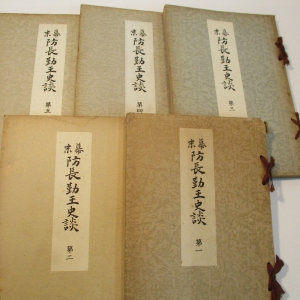 幕末
防長勤王史談
第五
幕末
防長勤王史談
第四
幕末
防長勤王史談
第三
幕末
防長勤王史談
第二
幕末
防長勤王史談
第一